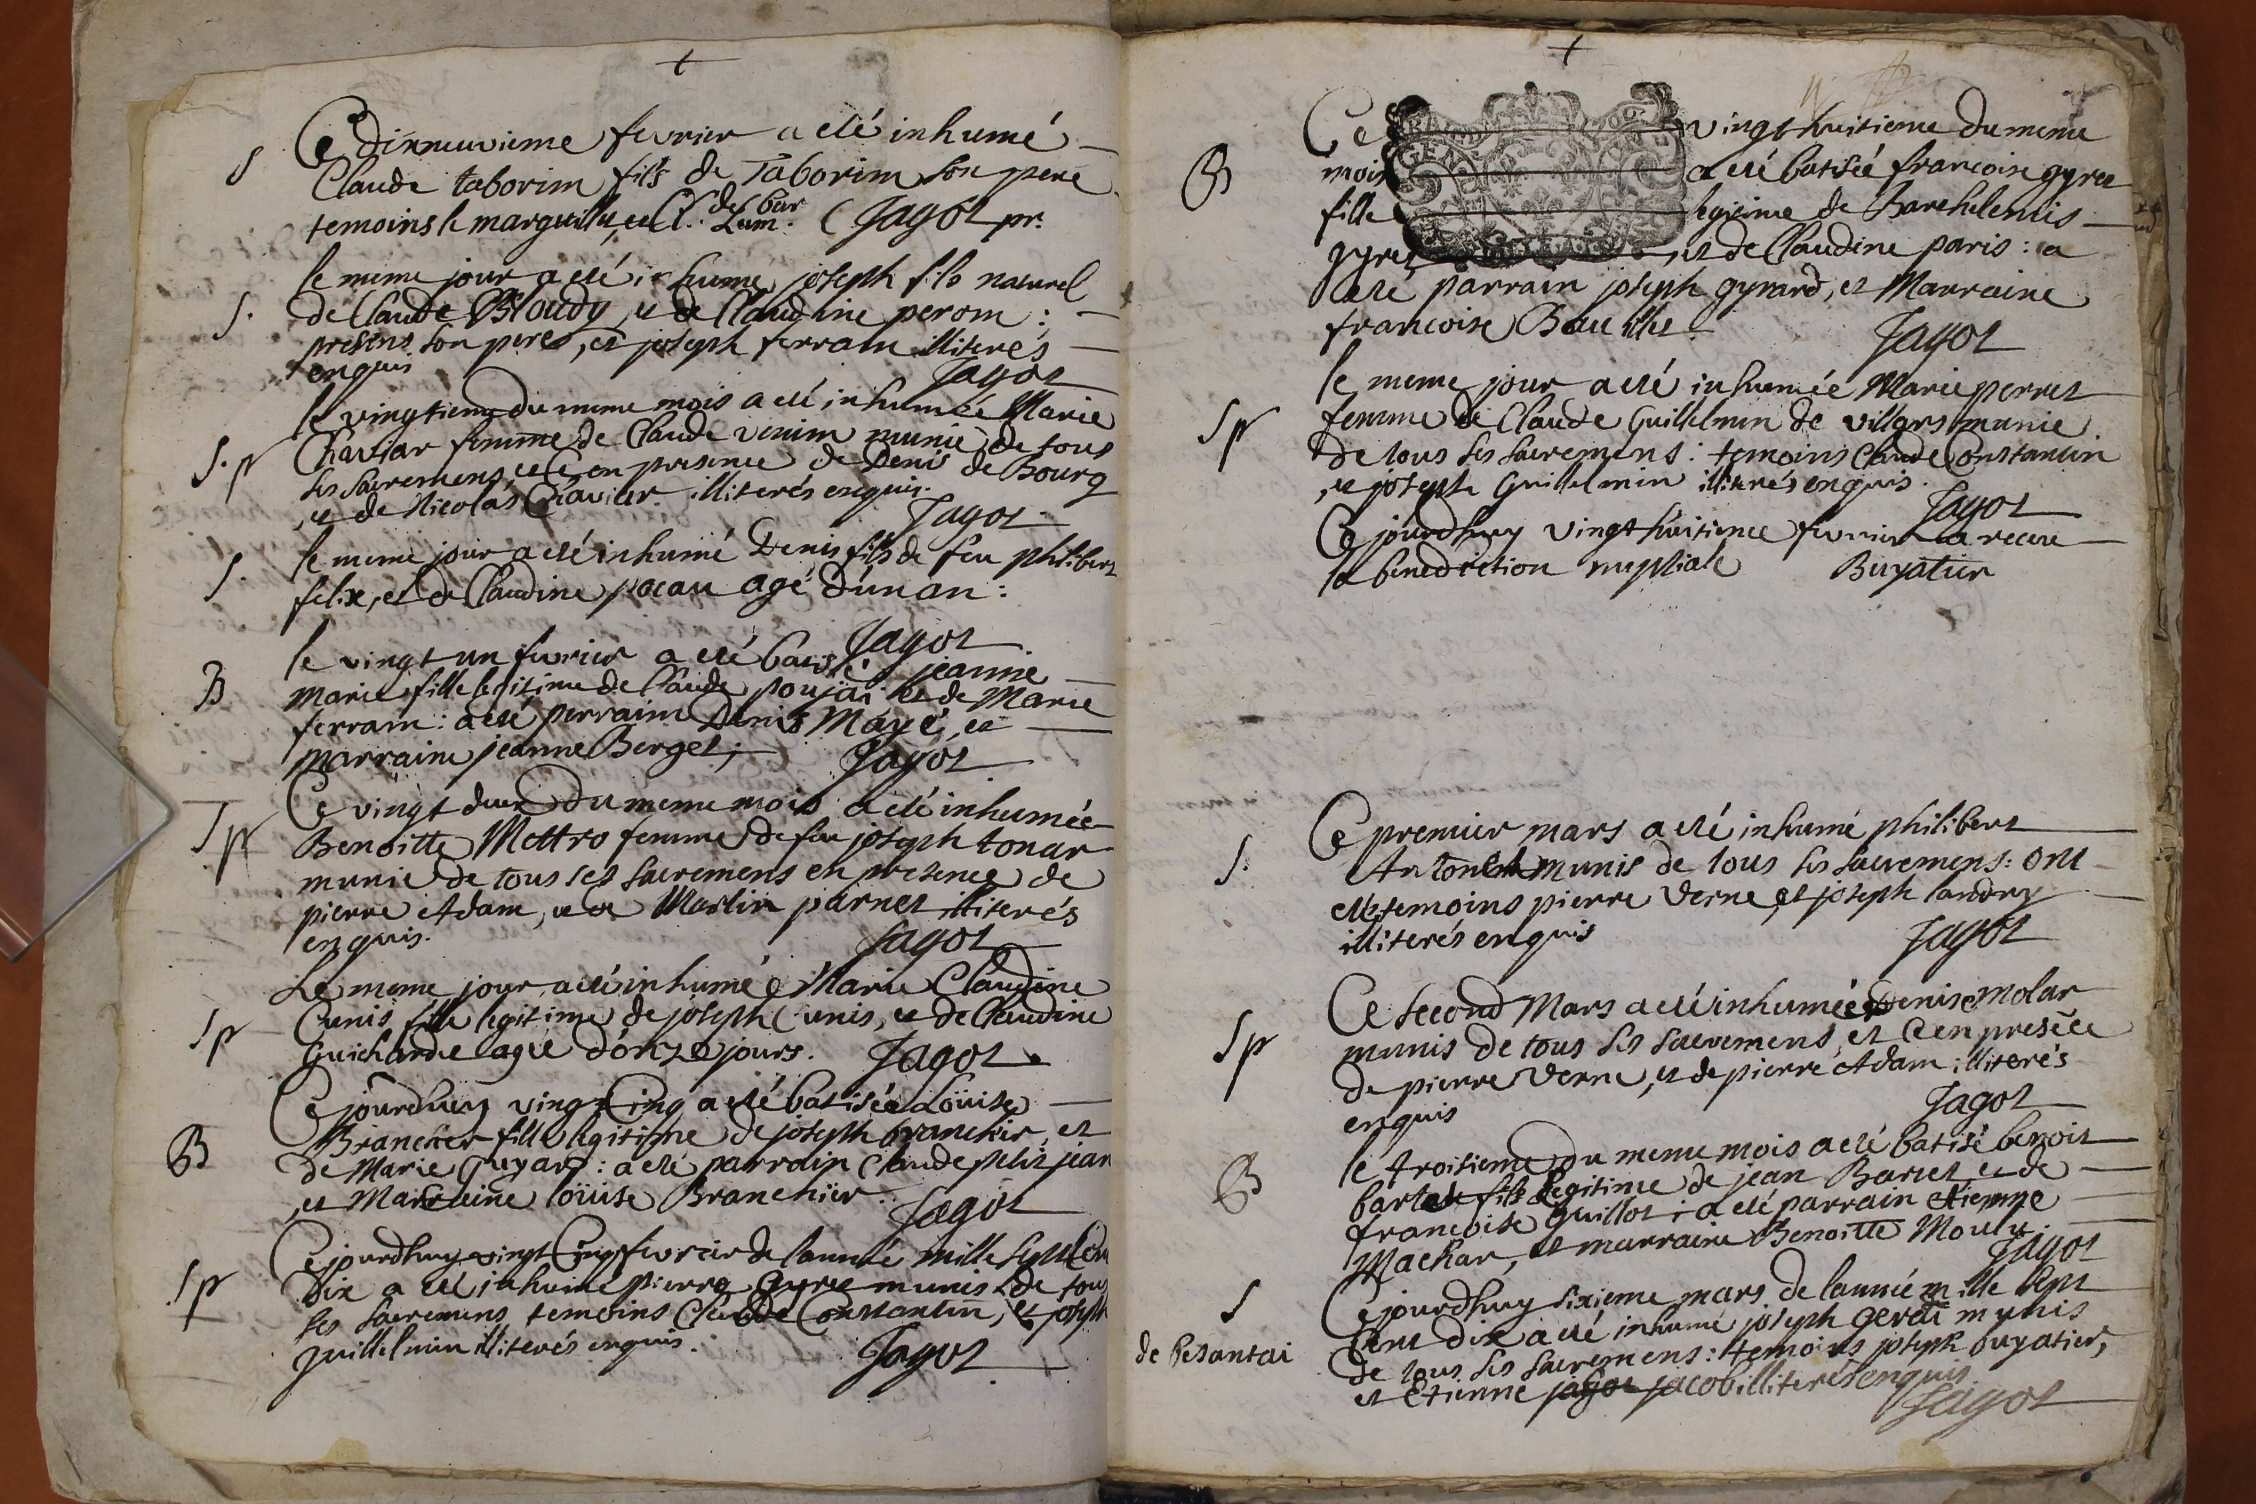 +
S Ce dixneuvieme fevrier a eté inhumé
Claude taborin fils de Taborin son pere
temoins le marguillié, et Cl. de bar Lam. Jagot pr.
le meme jour a eté inhume joseph fils naturel
S. de Claude Bloudy, et de Claudine perom :
presens son pere, et joseph ferram illiterés
enquis Jagot
le vingtieme du meme mois a eté inhumée Marie
S. p Chaviar femme de Claude venim munie de tous
ses sacremens, et ce en presence de Denis de Bourg
et de Nicolas Chaviar illiterés enquis.
Jagot
S. le meme jour a eté inhumé Denis fils de feu philibert
felix, et de Claudine pocau agé d'un an :
Jagot
le vingt un fevrier a eté batisé jeanne
B Marie fille legitime de Claude poujai et de Marie
ferram : a eté perrain Denis Mayé, et
marraine jeanne Berget ; Jagot
Ce vingt deux du meme mois a eté inhumée
Sp Benoitte Mettro femme de feu joseph tonar
munie de tous ses sacremens en presence de
pierre Adam, et de Martin parnet illiterés
enquis. Jagot
Le meme jour a eté inhumée Marie Claudine
Sp Cunis fille legitime de joseph Cunis, et de Claudine
Guichardie agée d'onze jours. Jagot
Ce jourdhuy vingt Cinq a eté batisée Loüise
B Brancher fille legitime de joseph branchir, et
de Marie Guyard : a eté parrain Claude felix jean
et Marraine loüise Branchier
Jagot
Ce jourdhuy vingt Cinq fevrier de lannée mille sept cen
Sp Dix a eté inhumé pierre Gyret munis de tous
ses sacremens temoins Claude Constantin, et joseph
guillelmin illiterés enquis.
Jagot
+
Ce vingt huitieme du meme
B mois a eté batisée francoise gyret
fille legitime de Barthelemis
gyret, et de Claudine paris : a
eté parrain joseph gyrard, et Marraine
francoise Jagot
le meme jour a eté inhumée Marie perret
Sp femme de Claude Guillelmin de villars munie
de tous ses sacremens : temoins Claude Constantin
et joseph Guillelmin illiterés enquis.
Jagot
Ce jourdhuy vingt huitieme fevrier a receu
la benediction nuptiale Buyatier
Ce premier mars a eté inhumé philibert
S. munis de tous ses sacremens : ont
eté temoins pierre Verne, et joseph landry
illiterés enquis Jagot
Ce second Mars a eté inhumée Denise Molar
Sp munis de tous ses sacremens, et ce en presēce
de pierre Verne, et de pierre Adam illiterés
enquis Jagot
le troisieme du meme mois a eté batisé benoit
B fils legitime de jean Barlet et de
francoise Guillot : a eté parrain etienne
Machar, et marraine Benoitte
Jagot
S Ce jourdhuy sixieme mars de lannée mille sept
Cent dix a eté inhumé joseph munis
de besantai de tous ses sacremens : temoins joseph buyatier,
et Etienne jacob illiterés enquis
Jagot